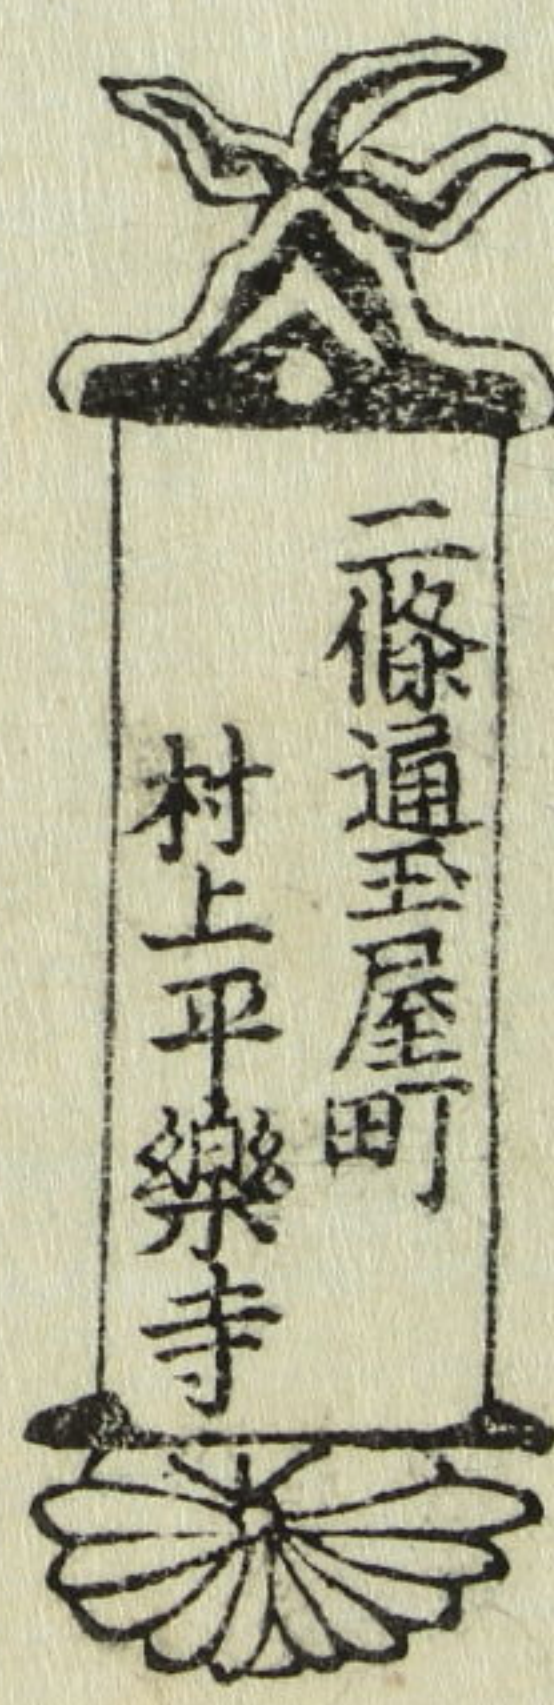 二條通玉屋町
村上平樂寺